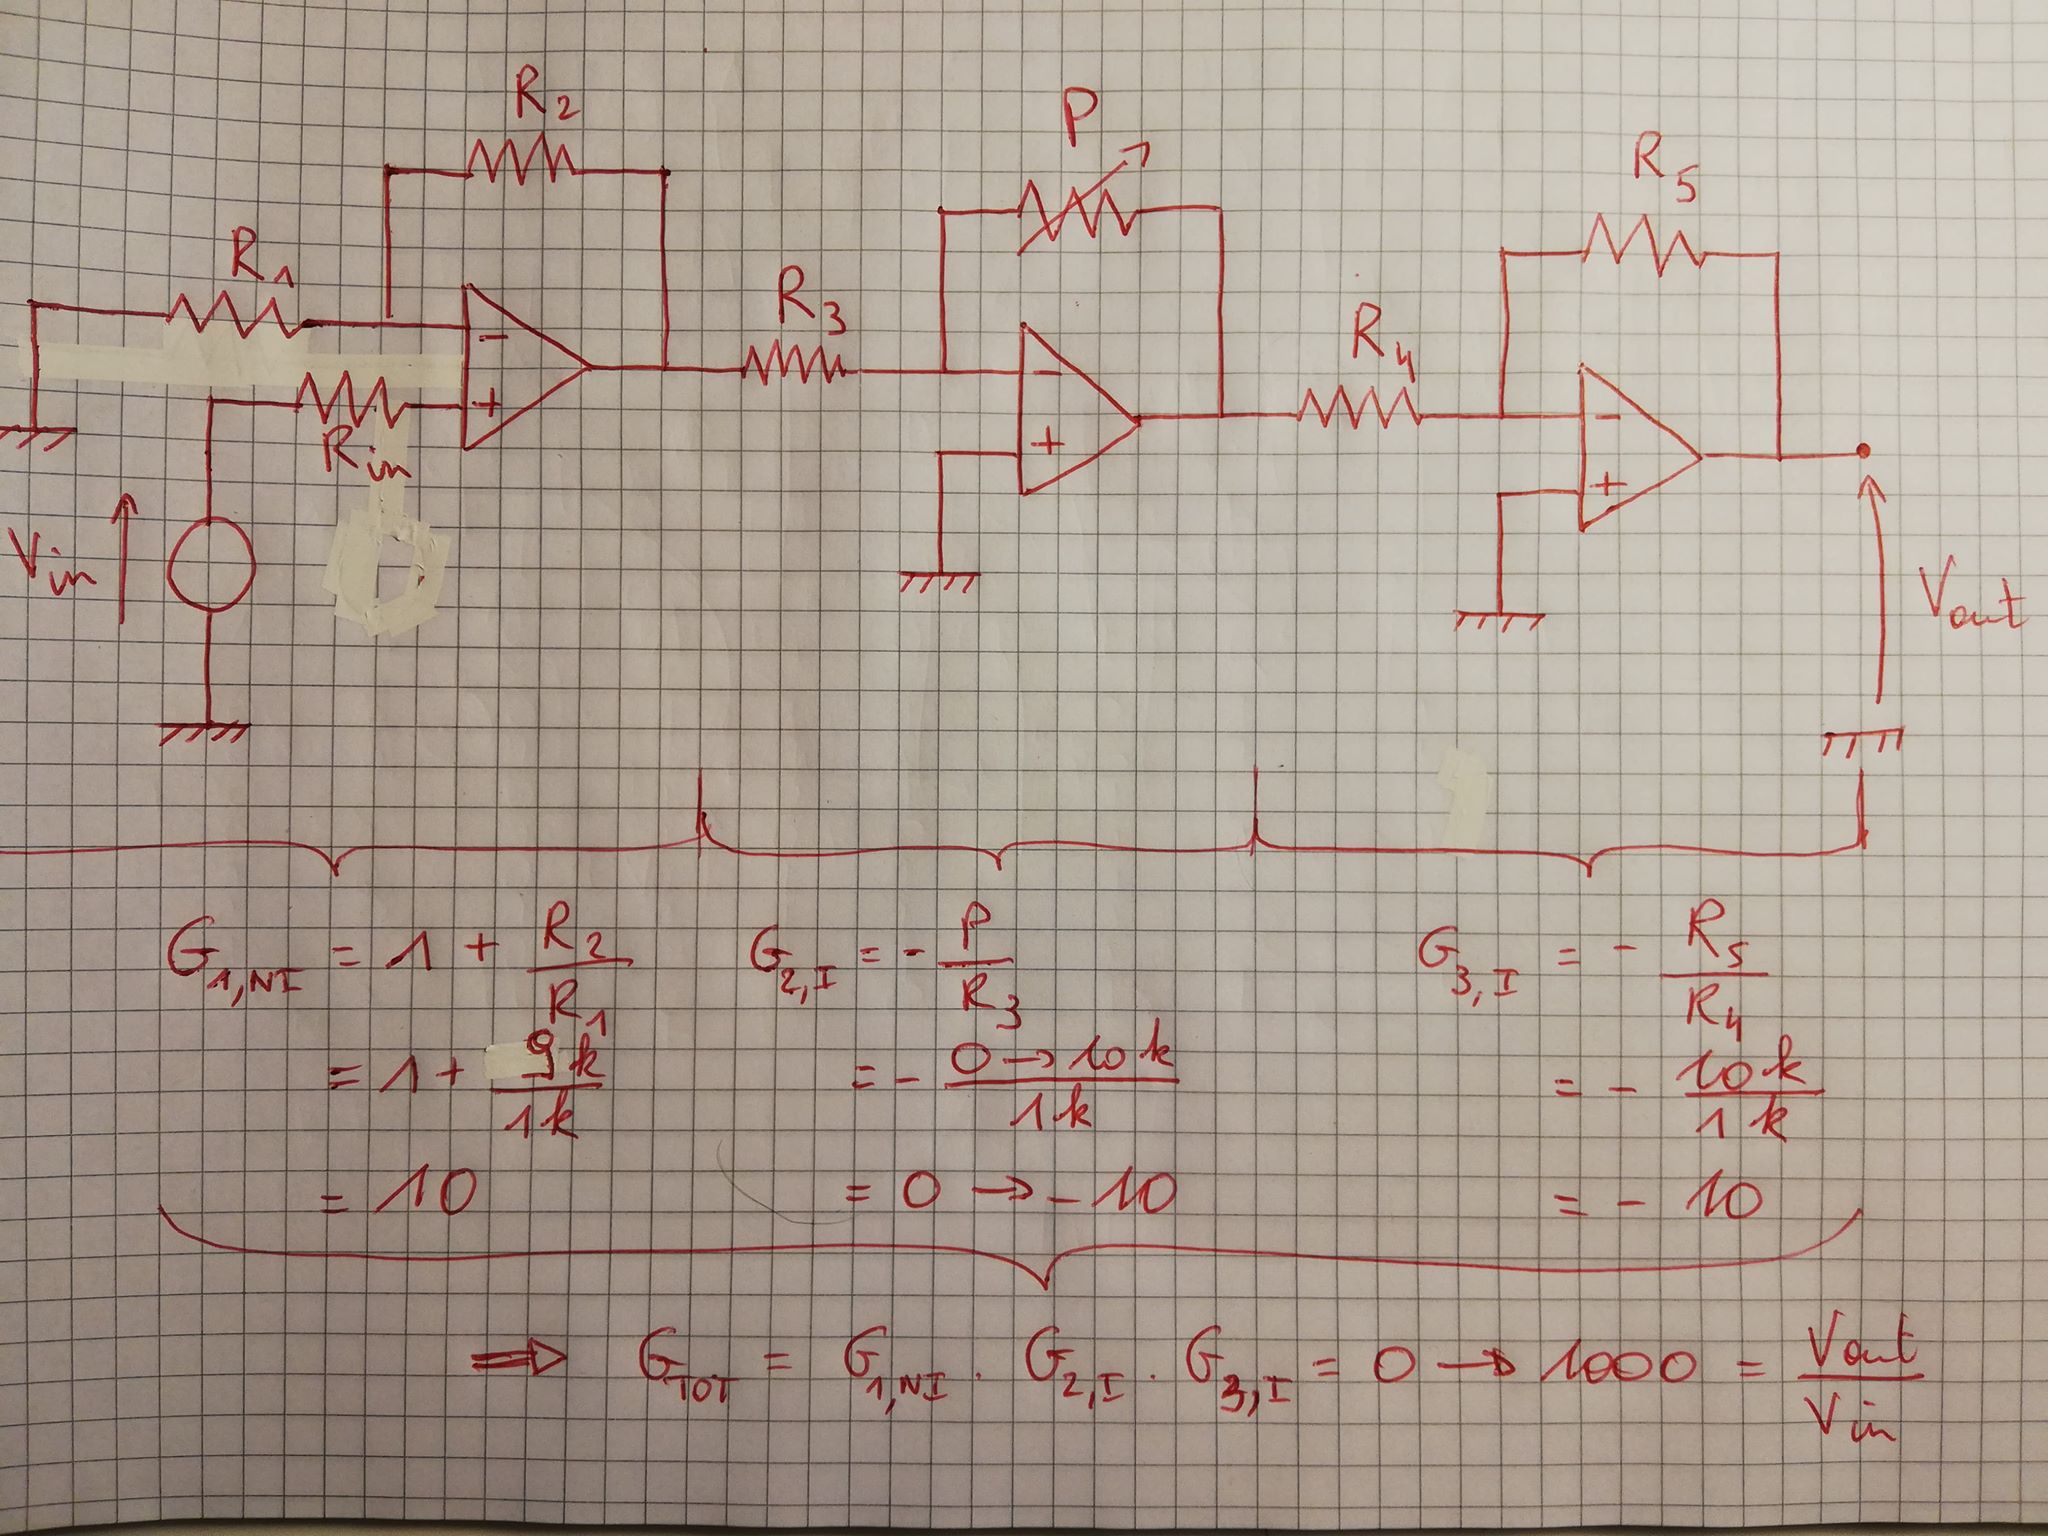 R2
P
R5
R1
R3
R4
-
+
-
+
-
+
Rin
Vin
Vout
G1,NI = 1 + R2/R1
= 1 + 9k/1k
= 10
G2,I = - P/R3
= - 0 → 10k/1k
= 0 → - 10
G3,I = - R5/R4
= - 10k/1k
= - 10
⇒ GTOT = G1,NI . G2,I . G3,I = 0 → 1000 = Vout/Vin